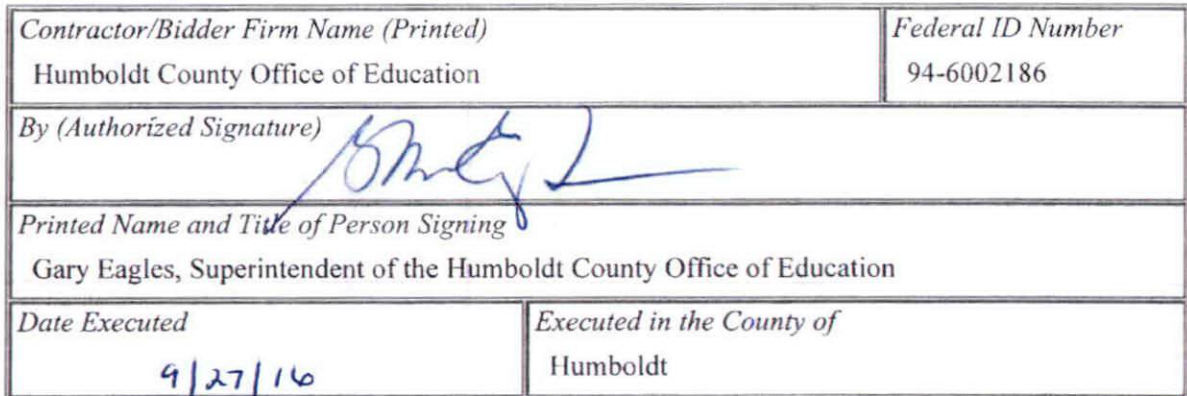 Contractor/Bidder Firm Name (Printed)
Federal ID Number
Humboldt County Office of Education
94-6002186
By (Authorized Signature)
Printed Name and Title of Person Signing
Gary Eagles, Superintendent of the Humboldt County Office of Education
Date Executed
Executed in the County of
9/27/16
Humboldt